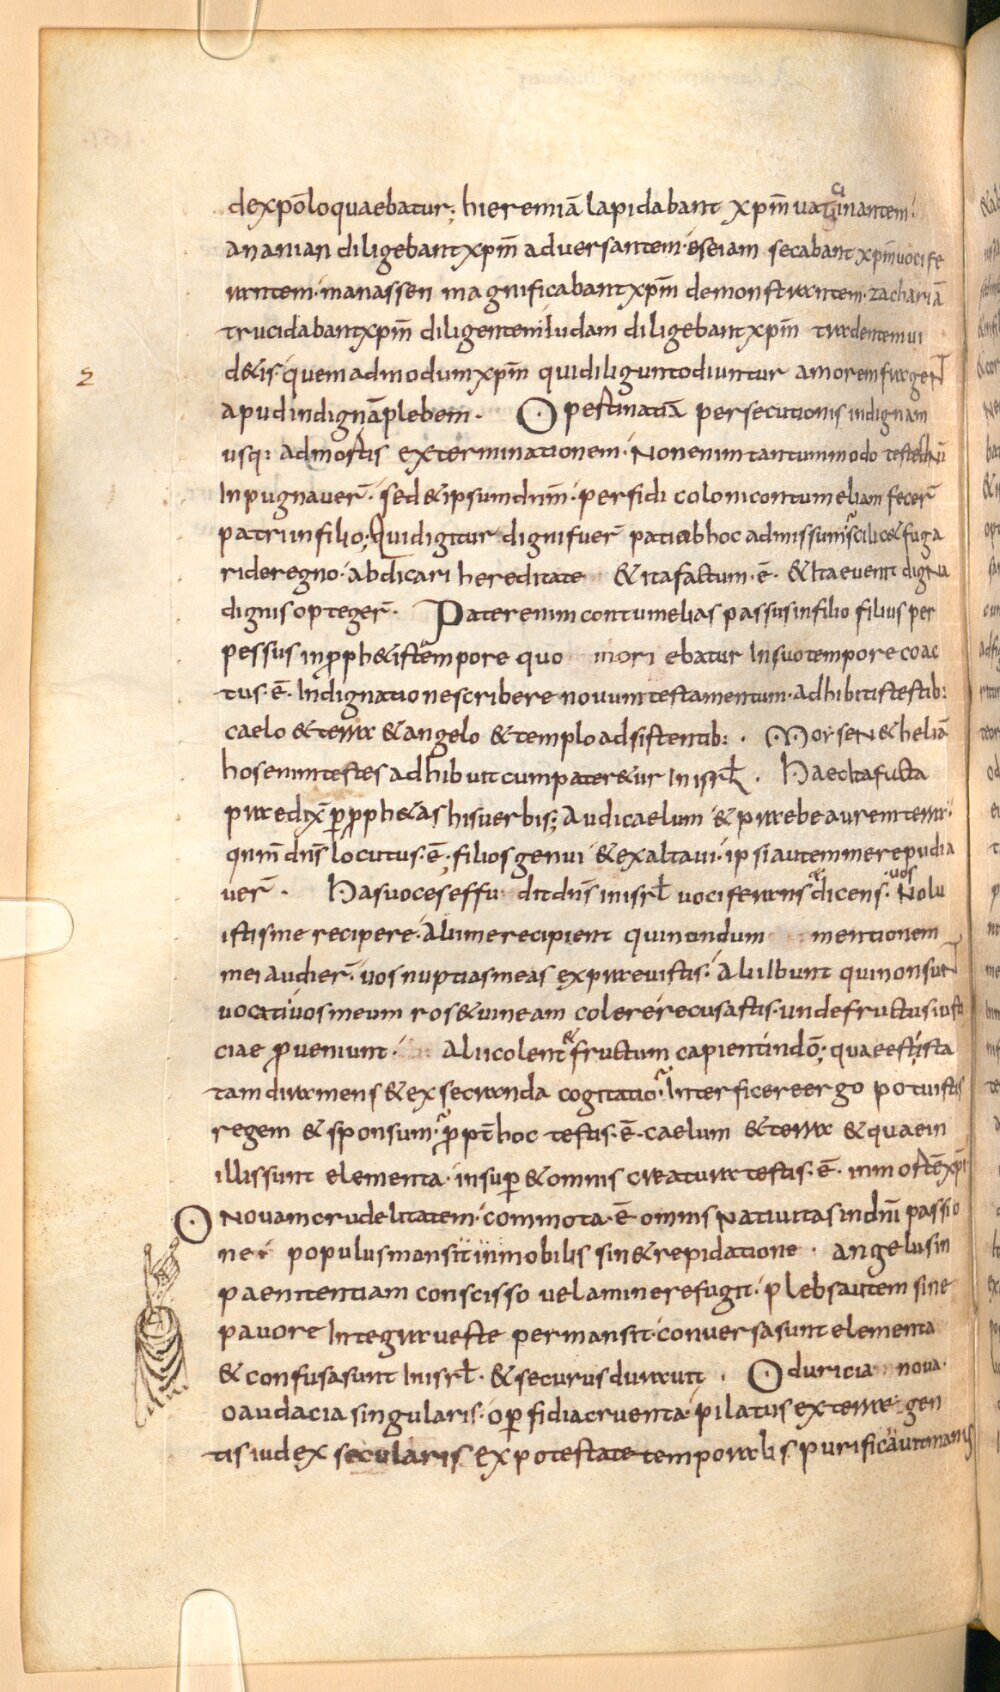 dexpōloquaebatur; hieremiā lapidabant xpm̄ uaticinantem·
ananian diligebant xpm̄ aduersantem· eseiam secabant xpm̄ uocife
rantem· manassen magnificabant xpm̄ demonstrantem· zachariā
trucidabant xpm̄ diligentem iudam diligebant xpm̄ tradentem ui
d&is· quemadmodum xpm̄ qui diligunt odiuntur amorem frangeNT
apud indignā plebem· O pestinatiā persecutionis indignam
usq: ad mortis exterminationem· Non enim tantummodo
Inpugnauer̄· sed & ipsum dnm̄· perfidi coloni contumeliam fecer̄
patri in filio; Quid igitur digni fuer̄ pati ab hoc admissum scilic& fuga
ri de regno· abdicari hereditate & ita factum· ē· & Ita euenit digNa
dignis opteger̄· Pater enim contumelias passus in filio filius per
pessus in proph&is tempore quo moriebatur In suo tempore coac
tus· ē· Indignatione scribere nouum testamentum· adhibitis testib:
caelo & terra & angelo & templo adsistentib:· MoyseN & heliā
hos enim testes adhibuit cum pater&ur In isrł· Haec ita facta
praedix̄ per proph&as his uerbis; Audi caelum & praebe aurem terra·
qnm̄ dn̄s locutus· ē· filios genui & exaltaui· ipsi autem me repudia
uer̄· Has uoces effudit dn̄s in isrł uociferans & dicens· uos Nolu
istis me recipere· Alii me recipient qui nondum mentionem
mei audier̄· uos nuptias meas expraeuistis· Alii ibunt qui non suNT
uocati uos meum ros & uineam colere recusastis· unde fructus iusti
ciae proueniunt· Alii colent & fructum capient indō; quae est ista
tam dira mens & exsecranda cogitatio· Interficere ergo potuistis
regem & sponsum· propt̄ hoc testis· ē· caelum & terra & quae in
illis sunt elementa· insuper & omnis creatura testis· ē· in mortē xpi
O Nouam crudelitatem· commota· ē omnis Natiuitas in dnī passio
ne· populus mansit inmobilis sine trepidatione· angelus in
paenitentiam conscisso uelamine refugit· plebs autem sine
pauore Integra ueste permansit· conuersa sunt elementa
& confusa sunt In isrł· & securus durauit· O duricia noua·
o audacia singularis· o perfidia cruenta· pilatus ex terrae gen
tis iudex secularis ex potestate temporalis purificauit manus
2